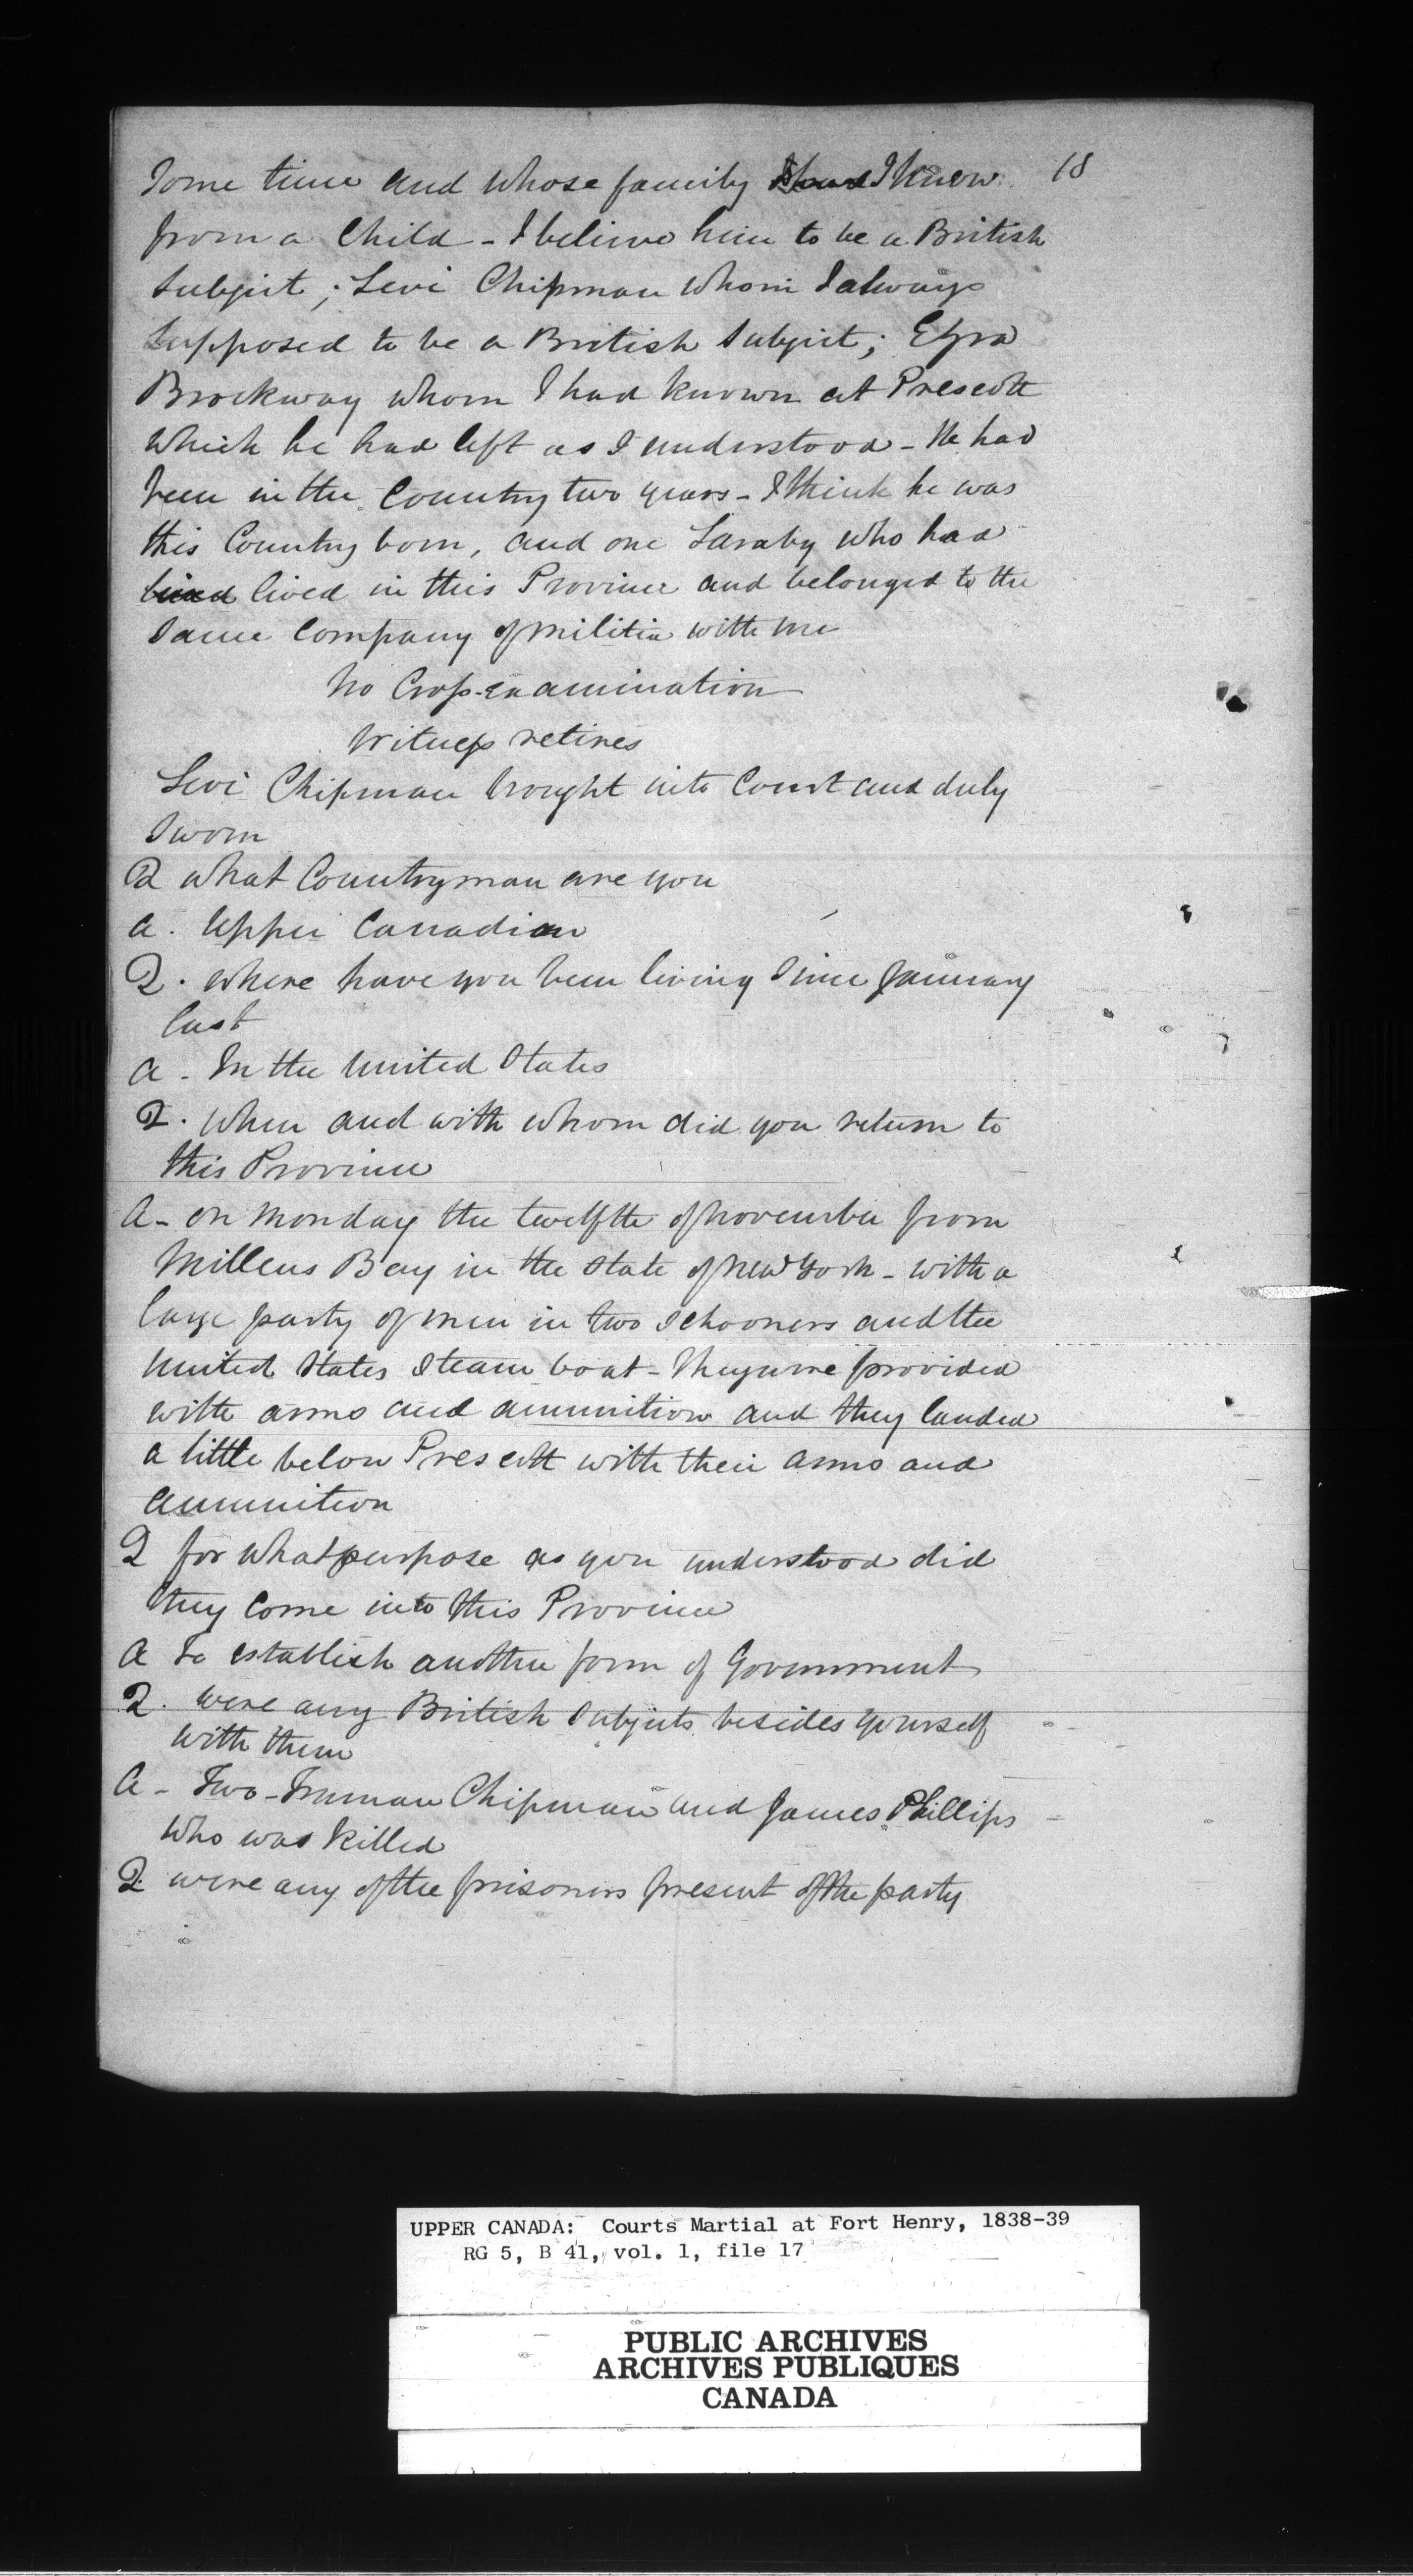 Some time and whose family I know 18
from a Child - I believe him to be a British
Subject ; Levi Chipman whom I always
supposed to be a British Subject ; Ezra
Brockway whom I had known at Prescott
which he had left as I understood - He had
been in the Country two years - I think he was
this Country born, and one Laraby who had
lived in this Province and belonged to the
Same Company of Militia with me
No Cross-examination
Witness retires
Levi Chipman brought into Court and duly
Sworn
Q what Countryman are you
A. Upper Canadian
Q. where have you been living Since January
last
A - In the United States
Q. When and with whom did you return to
this Province
A - on Monday the twelfth of November from
Millens Bay in the State of New York - with a
large party of men in two Schooners and the
United States Steam boat - They were provided
with arms and ammunition and they landed
a little below Prescott with their arms and
ammunition
Q for what purpose as you understood did
they Come into this Province
A To establish another form of Government
Q. were any British Subjects besides yourself
with them
A - Two - Truman Chipman and James Phillips
who was killed
Q. were any of the prisoners present of the party
UPPER CANADA: Courts Martial at Fort Henry, 1838-39
RG 5, B 41, vol. 1, file 17
PUBLIC ARCHIVES
ARCHIVES PUBLIQUES
CANADA